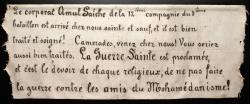 Le corporal Amut Saïche de la 12ème compagnie du 3ème
bataillon est arrivé chez nous sainte et sauf, et il est bien
traité et soigné! Camerades, venez chez nous! Vous seriez
aussi bien traités. La Guerre Sainte est proclamée,
et c'est le devoir de chaque religieux, de ne pas faire
la guerre contre les amis du Mohamédanisme!